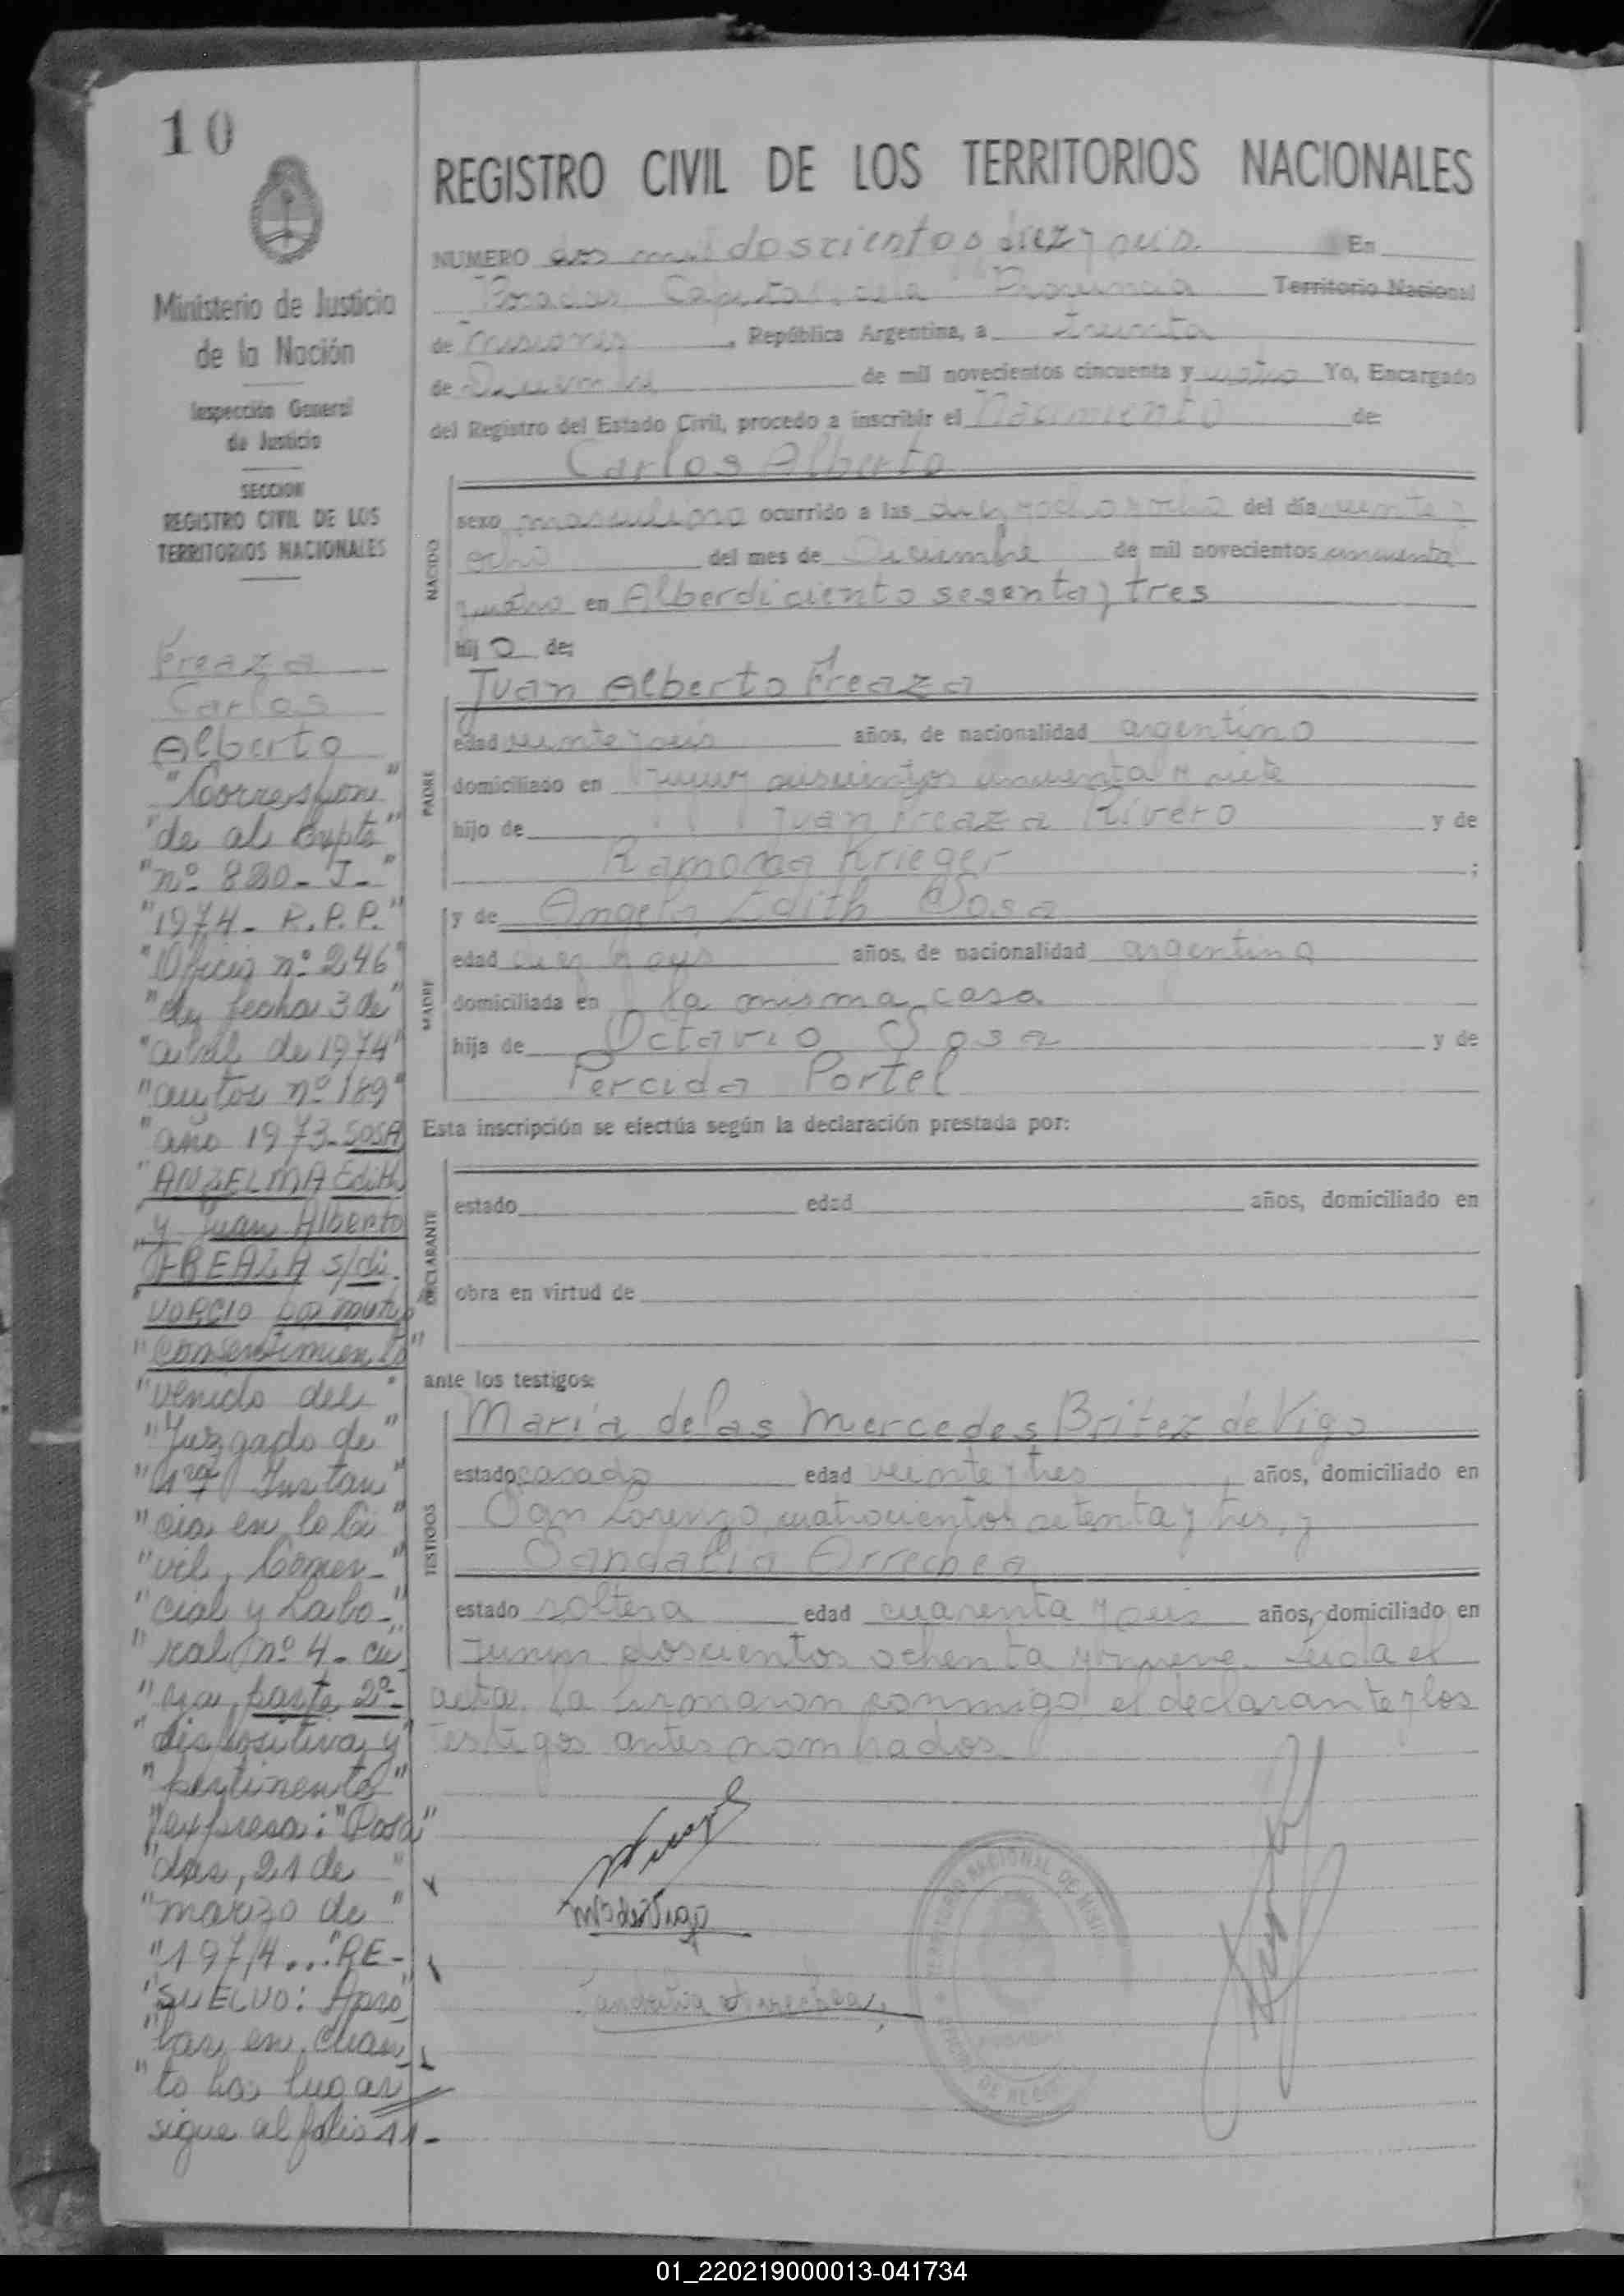 10
Ministerio de Justicia
de la Nación
Inspección General
de Justicia
SECCION
REGISTRO CIVIL DE LOS
TERRITORIOS NACIONALES
Freaza
Carlos
Alberto
"Correspon"
"de al Expte"
"nº 880-J-"
"1974- R.P.P."
"Oficio nº 246"
"de fecha 3 de"
"abril de 1974"
"autos nº 189"
"año 1973-SOSA
"ANSELMA Edith
"y Juan Alberto
"FREAZA s/di
"VORCIO por mutuo
"consentimiento"
"venido del"
"Juzgado de"
"1ra Instan"
"cia en lo Ci"
"vil, Comer-"
"cial y Labo-"
"ral nº 4- cu
"ya parte 2ª-
"dispositiva y
"pertinente"
"expresa: "Posa"
"das, 21 de "
"marzo de "
"1974..."RE-
"SUELVO: Apro
"bar en cuan
"to ha lugar
sigue al folio 11-
REGISTRO CIVIL DE LOS TERRITORIOS NACIONALES
NUMERO dos mil doscientos diez y seis En
Posadas Capital de la Provincia Territorio Nacional
de Misiones, República Argentina, a Treinta
de Diciembre de mil novecientos cincuenta y cuatro Yo, Encargado
del Registro del Estado Civil, procedo a inscribir el Nacimiento de:
Carlos Alberto
NACIDO
sexo masculino ocurrido a las del día veinte y
ocho del mes de Diciembre de mil novecientos cincuenta
y cuatro en Alberdi ciento sesenta y tres
hijo de:
Juan Alberto Freaza
PADRE
edad veinte y seis años, de nacionalidad argentino
domiciliado en Jujuy seiscientos cincuenta y siete
hijo de Juan Freaza Rivero y de
Ramona Krieger ;
y de Edith Sosa
MADRE
edad diez y seis años, de nacionalidad argentina
domiciliada en la misma casa
hija de Octavio Sosa y de
Percida Portel
Esta inscripción se efectúa según la declaración prestada por:
DECLARANTE
estado edad años, domiciliado en
obra en virtud de
ante los testigos:
TESTIGOS
Maria de las Mercedes Britez de Vigo
estado casada edad veinte y tres, años, domiciliado en
San Lorenzo cuatrocientos setenta y tres, y
Sandalia Arrechea
estado soltera edad cuarenta y seis años, domiciliado en
Junin doscientos ochenta y nueve. Leida el
acta, la firmaron conmigo el declarante y los
testigos antes nombrados
M B de Vigo
Sandalia Arrechea
01_220219000013-041734